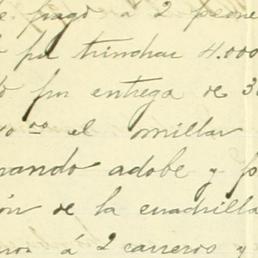 pagó a 2 peone
pr trinchar 4.000
por entrega de 3
el millar
ando adobe y p
ón de la cuadrilla
á 2 carreros y